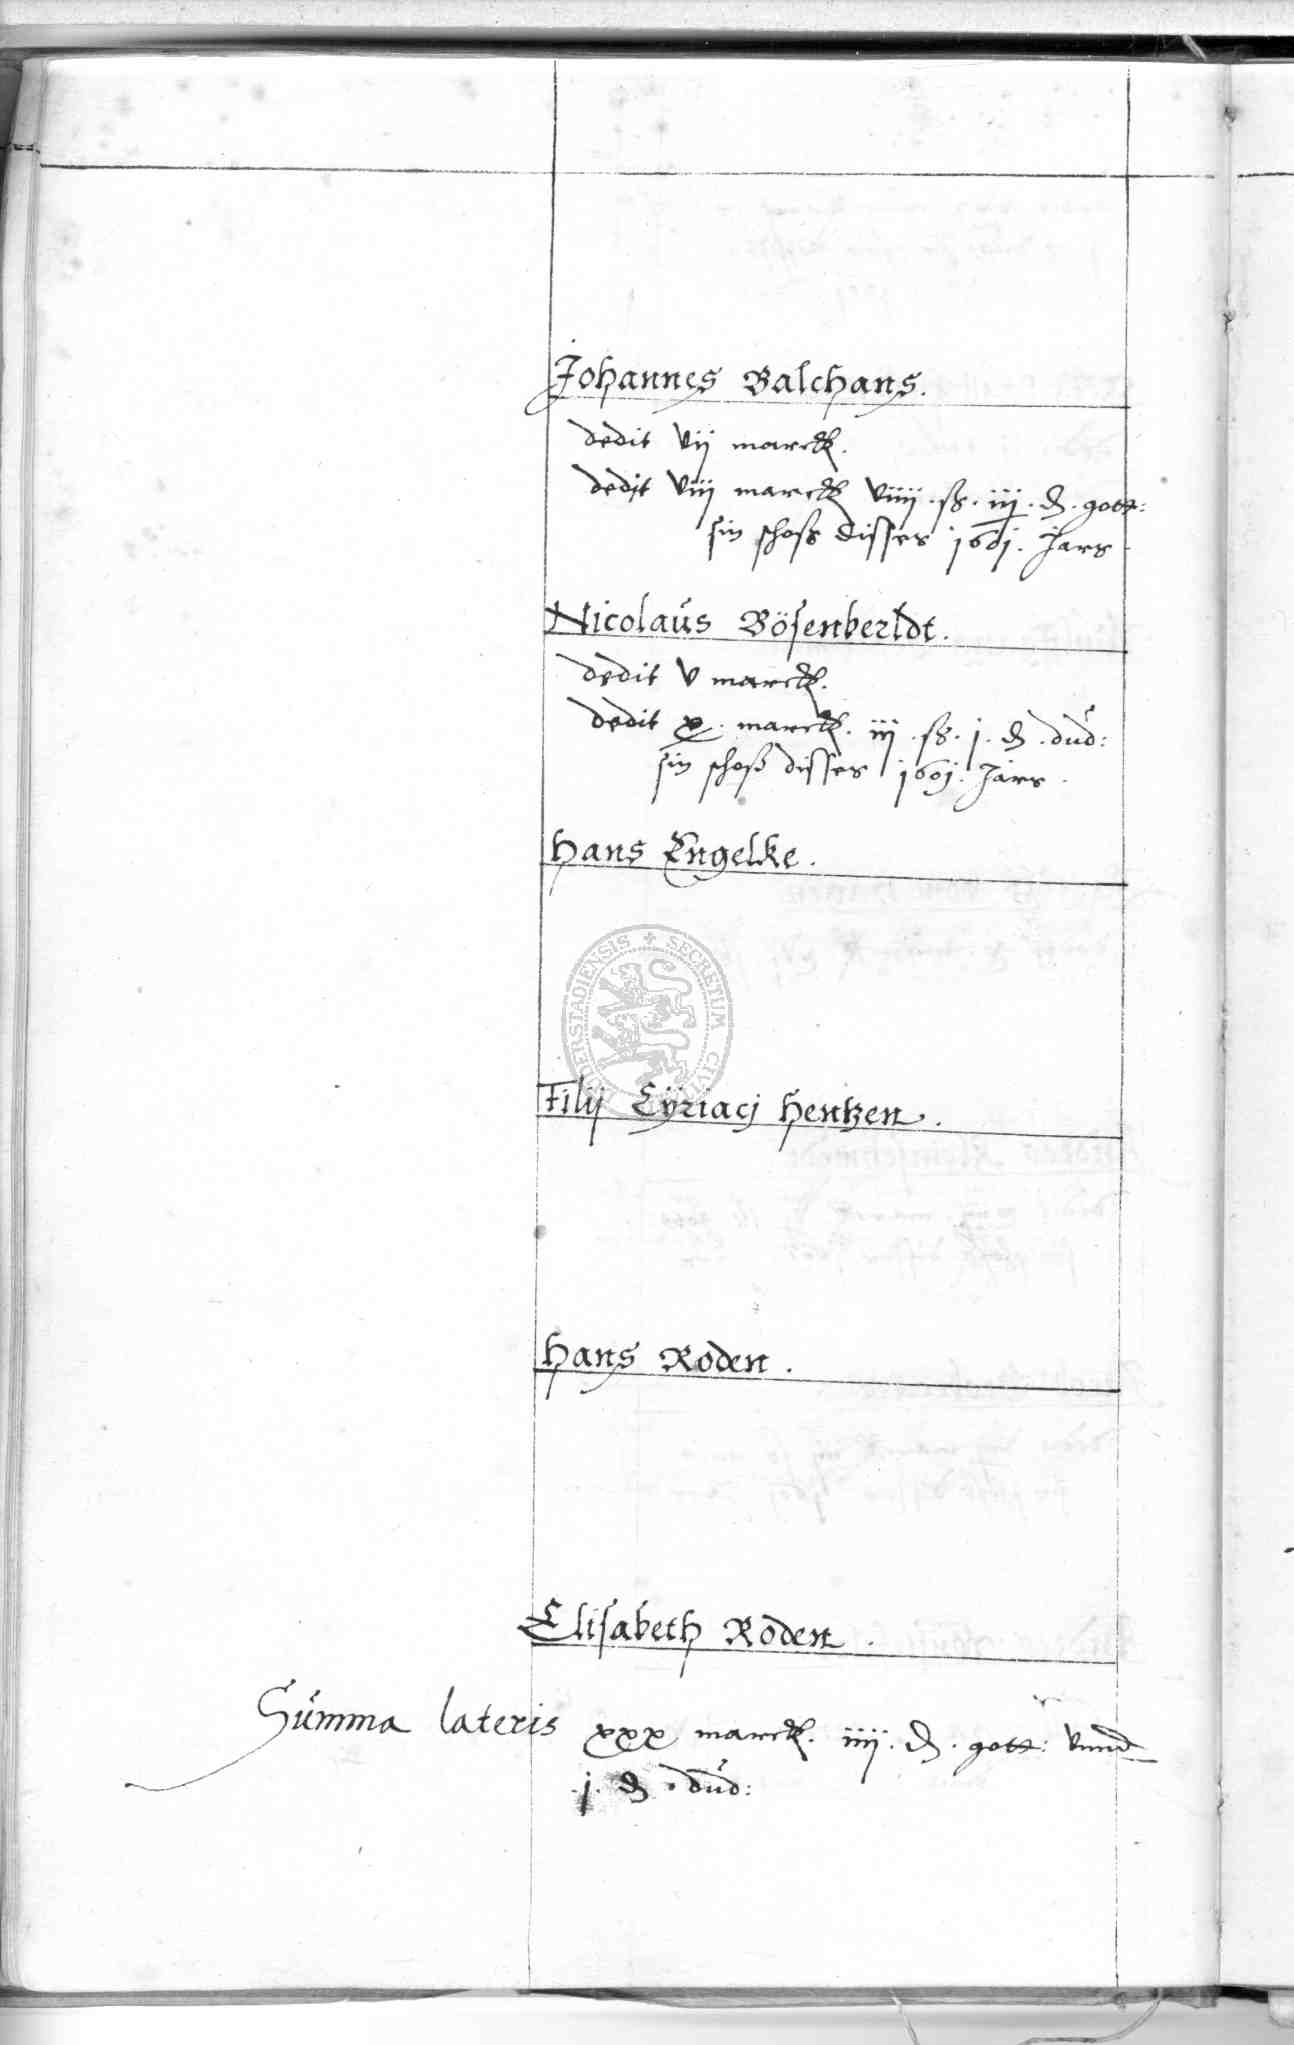 Johannes Balchans.
dedit vij marck.
dedit viij marck viiij . ß . iij . d . gott:
sin schoß disses 1601. Jars
Nicolaus Bösenberldt.
dedit v marck.
dedit x . marck . iij . ß . j . d . dud:
sin schoß disses 1601. Jars .
Hans Engelke .
SECRETUM CIVIT DERSTADIENSIS
Filij Cÿriacj Hentzen .
Hans Roden .
Elisabeth Roden .
Summa lateris xxx marck . iiij . d . gott: vnnd
. j . d . dud: